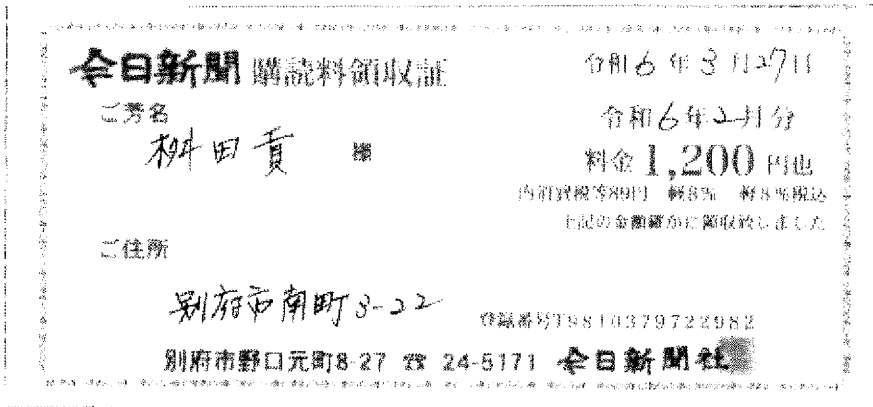 今日新聞 購読料領収証
令和6年3月27日
ご芳名
桝田貢 様
令和6年2月分
料金 1,200 円也
内消費税等89円 軽8% 軽8%税込
上記の金額確かに領収致しました
ご住所
別府市南町3-22
登録番号T9810379722982
別府市野口元町8-27 ☎ 24-5171 今日新聞社